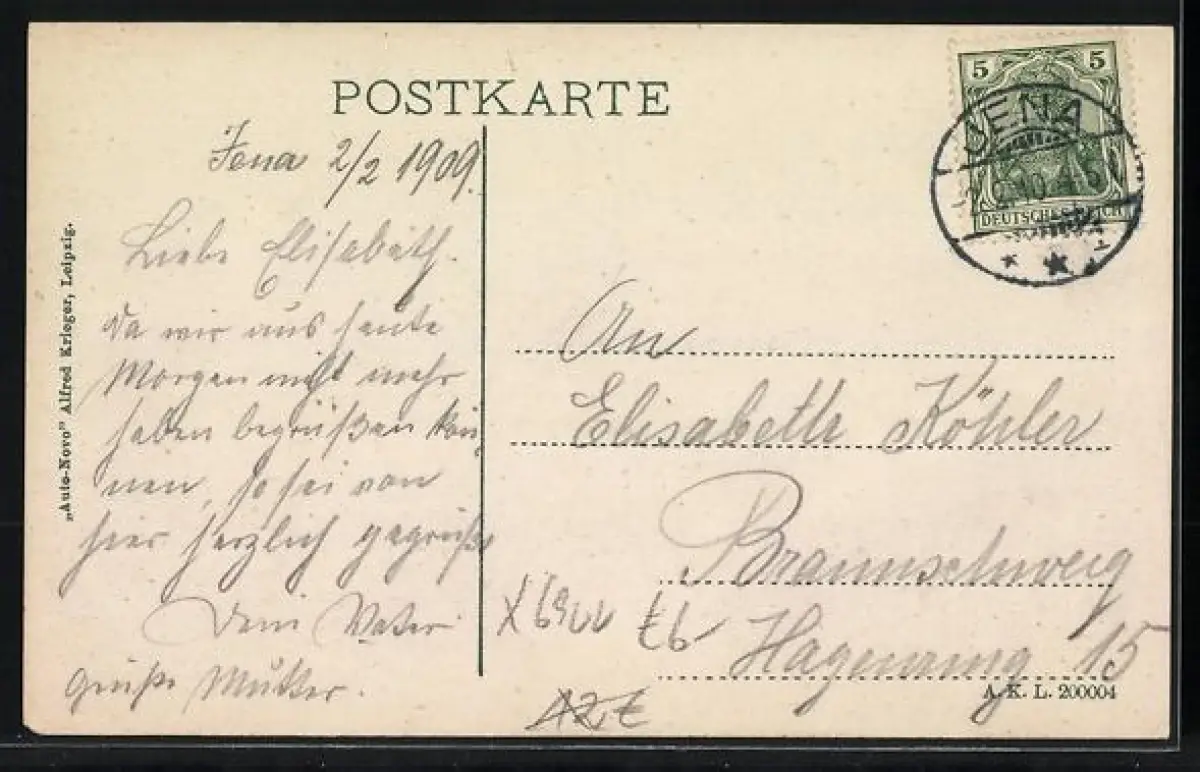 POSTKARTE
Jena 2/2 1909.
Liebe Elisabeth.
da wir uns heute
Morgen nicht mehr
haben begrüßen kön
nen, so sei von
hier herzlich gegrüßt
Dein Vater
grüße Mutter.
„Auto-Novo" Alfred Krieger, Leipzig.
5 5
DEUTSCHES REICH
JENA
An
Elisabeth Köhler
Braunschweig
Hagenring 15
A. K. L. 200004